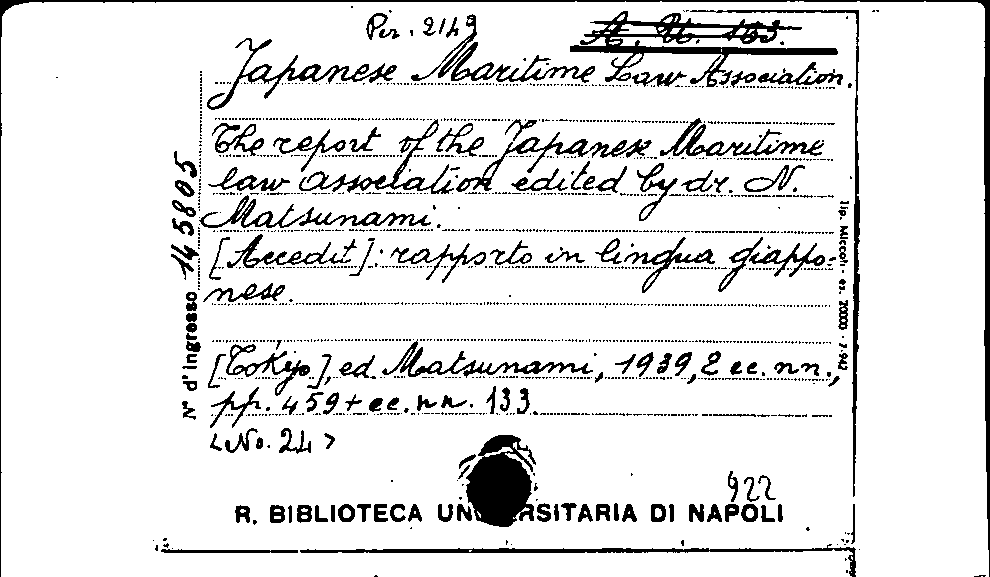 Per. 2149
A. U. 153.
Japanese Maritime Law Association.
The report of the Japanese Maritime
law association edited by dr. N.
Matsunami.
[Accedit]: rapporto in lingua giappo=
nese.
[Tókyo], ed. Matsunami, 1939, 2 cc. nn.,
pp. 459 + cc. nn. 133.
<No. 24>
N° d'ingresso 145805
tip. Miccoli - es. 70000 - 7-942
922
R. BIBLIOTECA UNIVERSITARIA DI NAPOLI